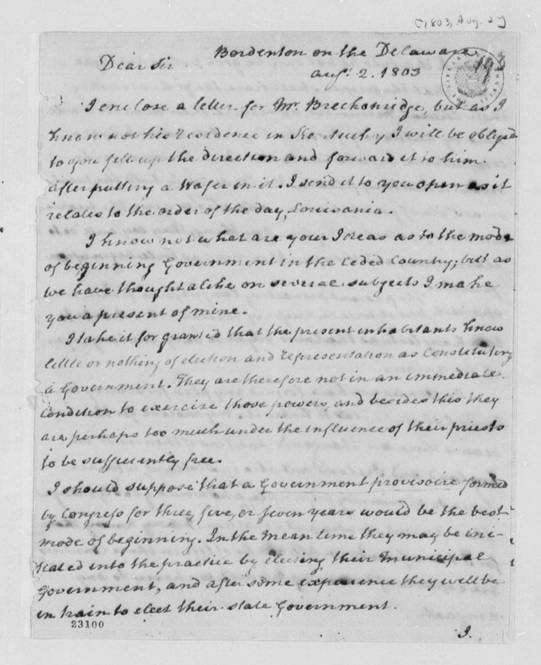 [1803, Aug. 2]
Bordenton on the Delaware
Dear Sir
Augt. 2. 1803
I enclose a letter for Mr. Breckenridge, but as I
know not his residence in Kentucky I will be obliged
to you fill up the direction and forward it to him
after putting a wafer in it. I send it to you open as it
relates to the order of the day, Louisiana.
I know not what are your Ideas as to the mode
of beginning Government in the Ceded Country; but as
we have thought alike on several subjects I make
you a present of mine.
I take it for granted that the present inhabitants know
little or nothing of election and representation as Constituting
a Government. They are therefore not in an immediate
Condition to exercise those powers, and besides this they
are perhaps too much under the influence of their priests
to be sufficiently free.
I should suppose that a Government provisoire formed
by Congress for three, five, or seven years would be the best
mode of beginning. In the mean time they may be ini-
tiated into the practice by electing their Municipal
Government, and after some experience they will be
in train to elect their state Government.
23100
I.